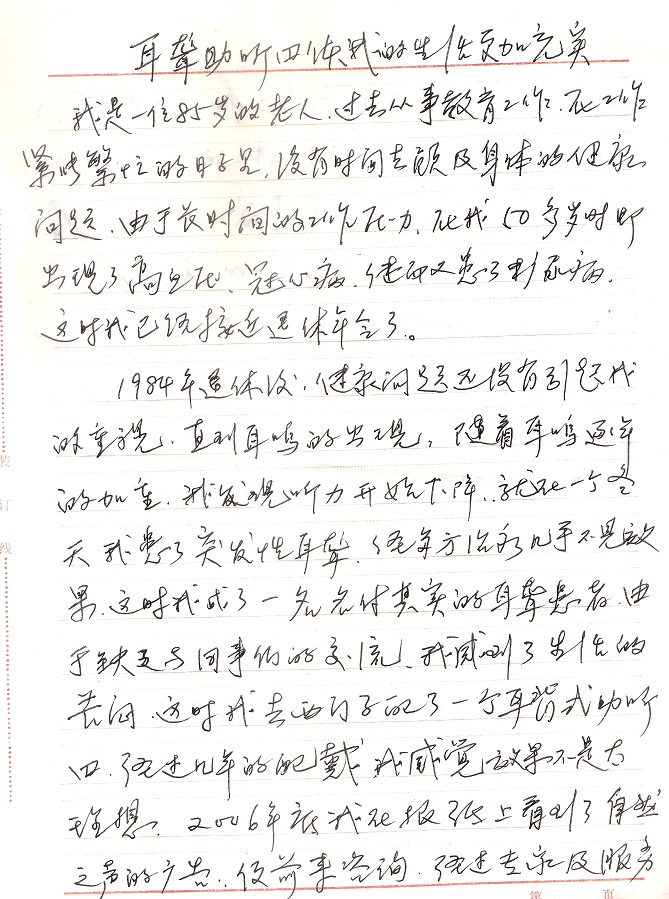 耳聋助听四体我的生活更加充实
我是一位85岁的老人、过去从事教育工作、在工作
紧张繁忙的日子里、没有时间去顾及身体的健康
问题、由于长时间的工作压力、在我50多岁时即
出现了高血压、冠心病、继而又患了糖尿病、
这时我已经接近退休年令了。
1984年退休后、健康问题还没有引起我
的重视、直到耳鸣的出现、随着耳鸣逐年
的加重、我发现听力开始下降、就在一个冬
天我患了突发性耳聋、经多方治疗几乎不见效
果、这时我成了一名名付其实的耳聋患者、由
于缺乏与同事们的交流、我感到了生活的
苦闷、这时我去西门子配了一个耳背式助听
四、经过几年的配戴我感觉效果不是太
理想、2006年底我在报纸上看到了自然
之声的广告、便前来咨询、经过专家及服务
装
订
线
第 页